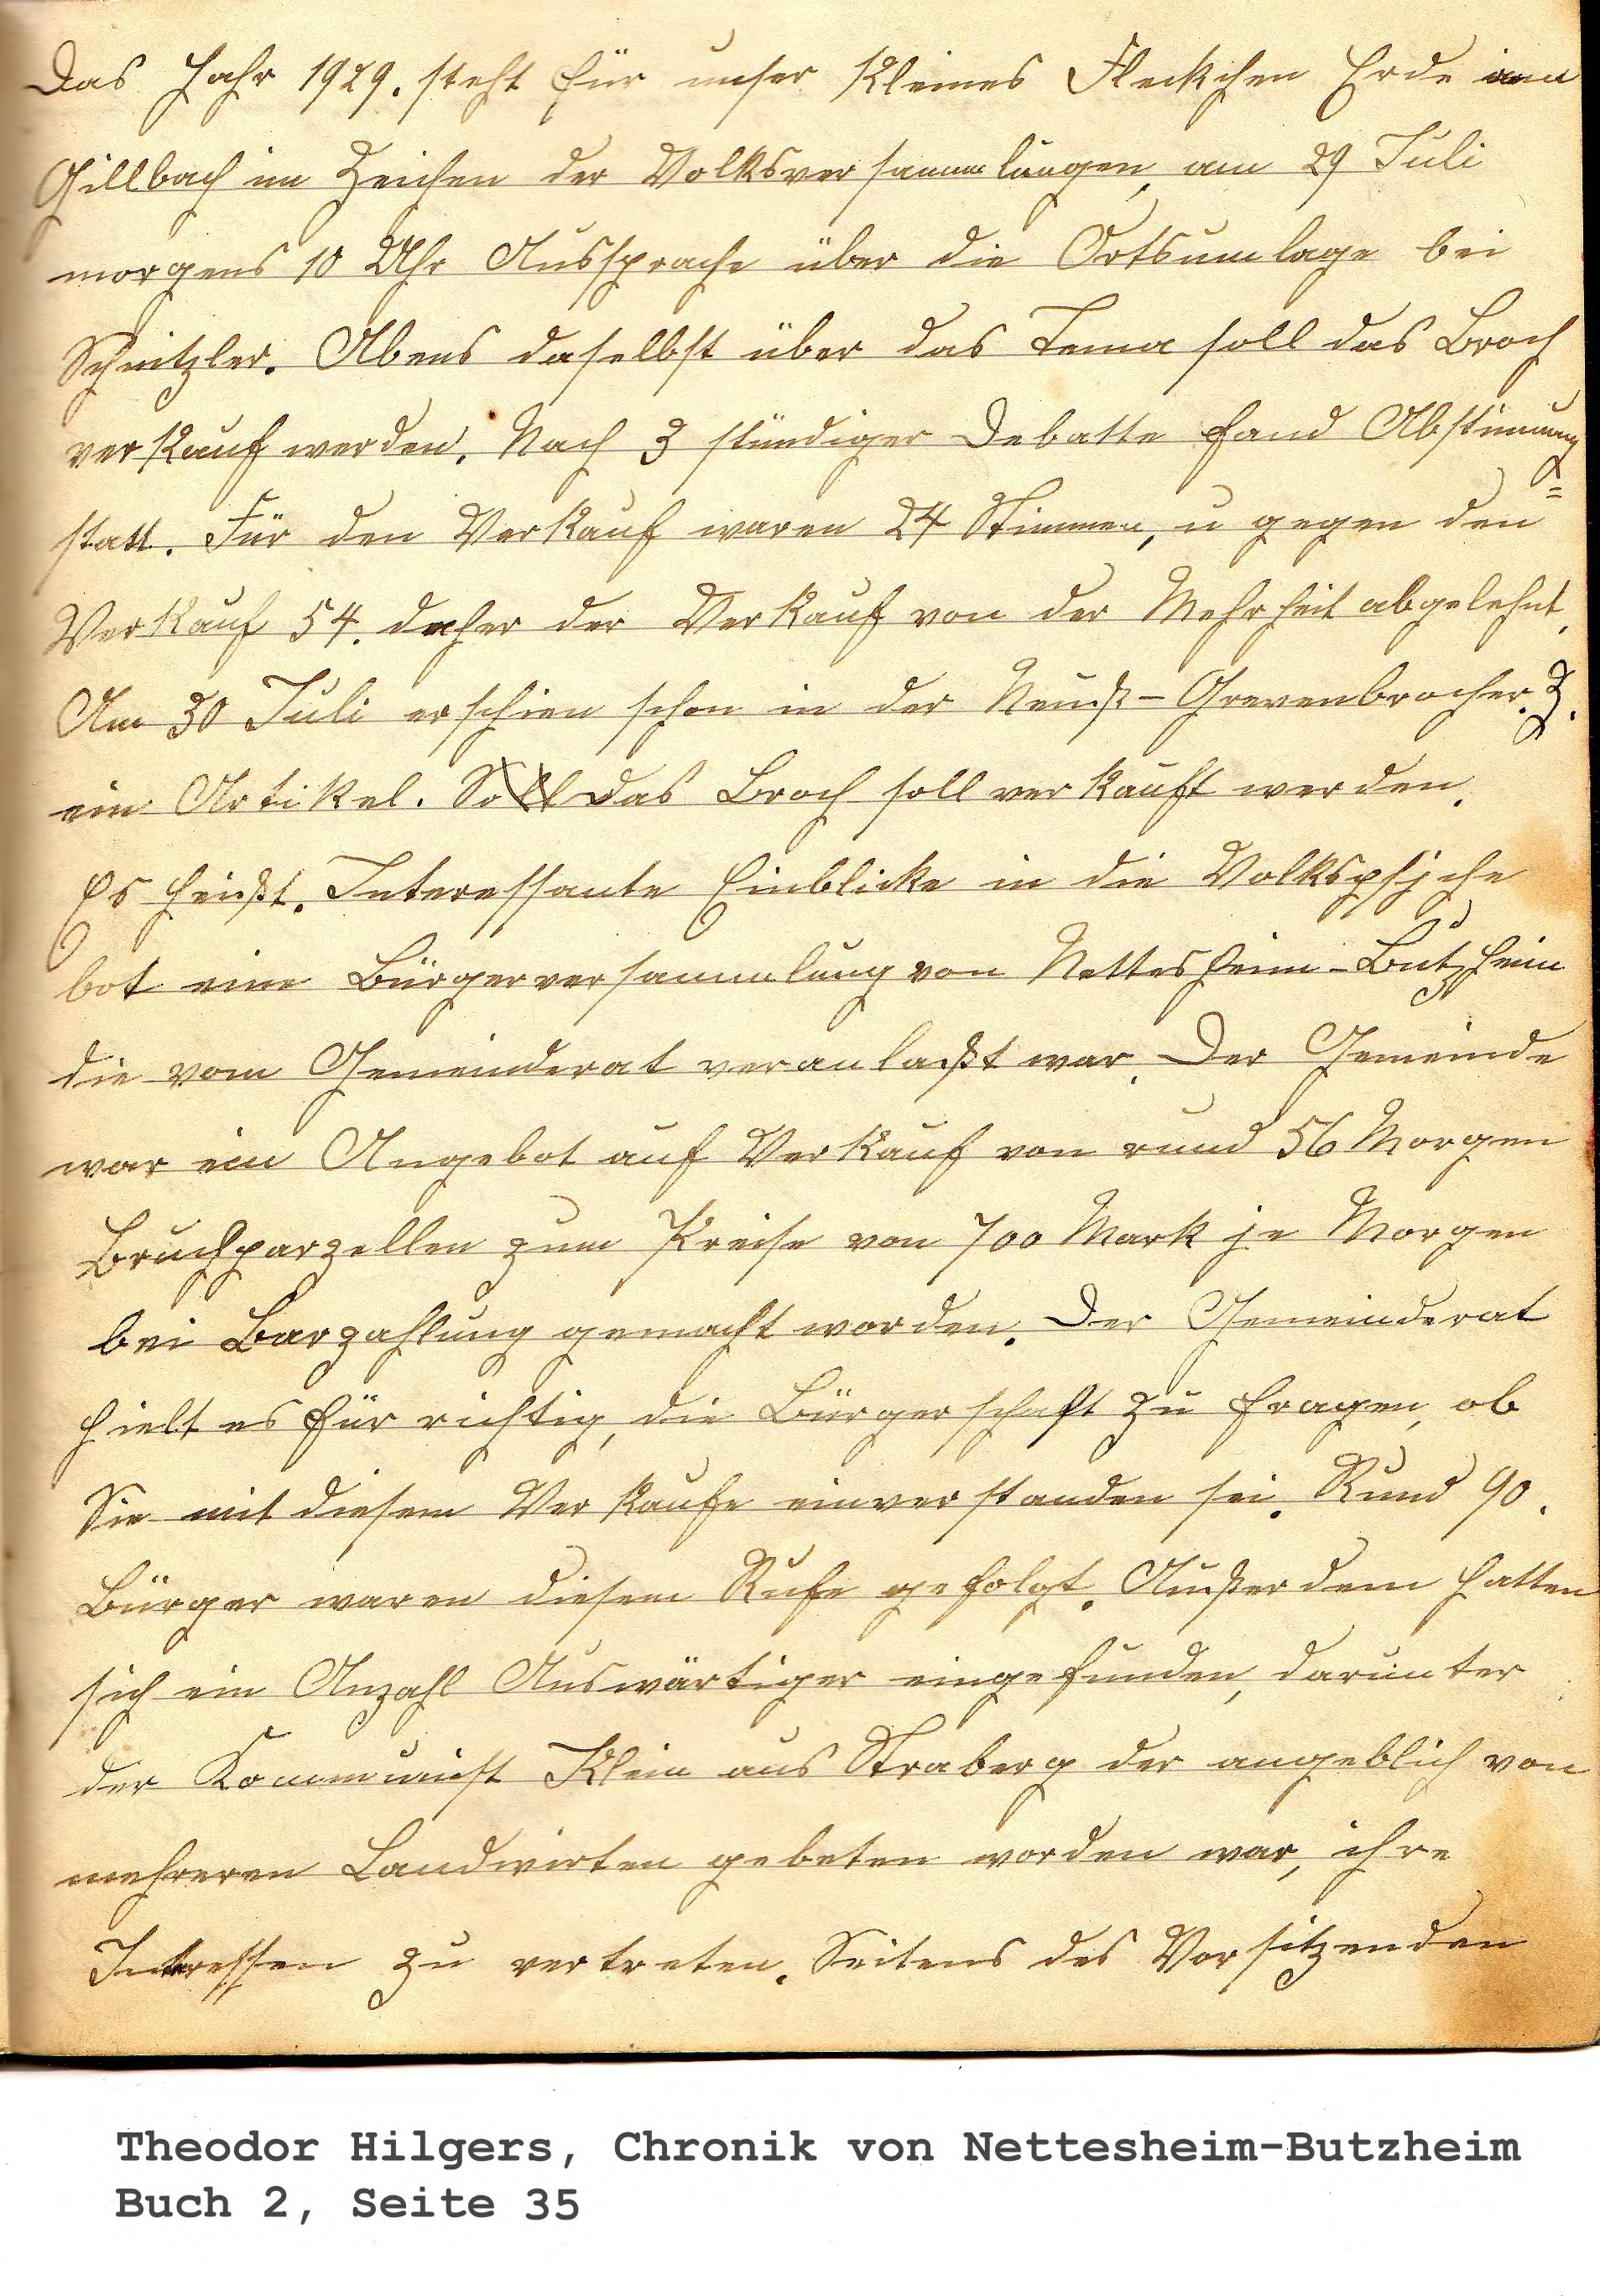 Das Jahr 1929. steht für unser Kleines Fleckchen Erde am
Gillbach im Zeichen der Volksversammlungen, am 29 Juli
morgens 10 Uhr Aussprache über die Ortsumlage bei
Schnitzler. Abens daselbst über das Tema soll das Broch
verkauf werden. Nach 3 stündiger Debatte fand Abstimmung
statt. Für den Verkauf waren 24 Stimmen, u gegen den
Verkauf 54. daher der Verkauf von der Mehrheit abgelehnt.
Am 30 Juli erschien schon in der Neuß-Grevenbrocher. Z.
ein Artikel. Soll das Broch soll verkauft werden.
Es heißt. Interessante Einblicke in die Volkspsyche
bot eine Bürgerversammlung von Nettesheim-Butzheim
die vom Gemeinderat veranlaßt war. Der Gemeinde
war ein Angebot auf Verkauf von rund 56 Morgen
Bruchparzellen zum Preise von 700 Mark je Morgen
bei Barzahlung gemacht worden. Der Gemeinderat
hielt es für richtig, die Bürgerschaft zu fragen, ob
Sie mit diesem Verkaufe einverstanden sei. Rund 90.
Bürger waren diesem Rufe gefolgt. Außerdem hatten
sich ein Anzahl Auswärtiger eingefunden, darunter
der Kommunist Klein aus Straberg der angeblich von
mehreren Landwirten gebeten worden war, ihre
Interessen zu vertreten. Seitens des Vorsitzenden
Theodor Hilgers, Chronik von Nettesheim-Butzheim
Buch 2, Seite 35